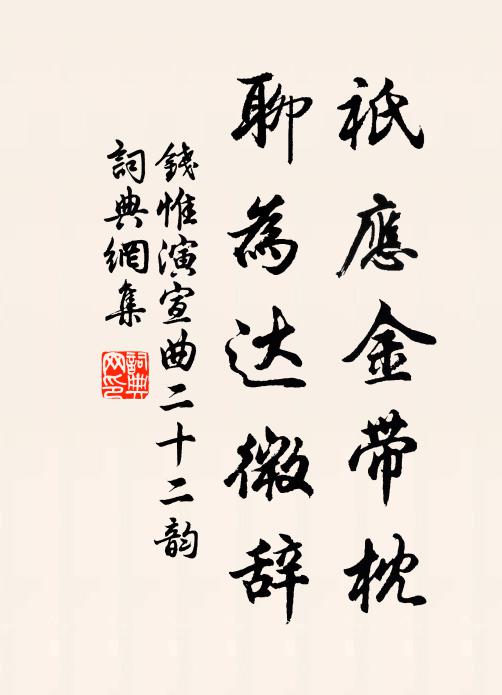 祇應金带枕
聊為达微辞
錢惟演宣曲二十二韵
詞典網集
詞典网印